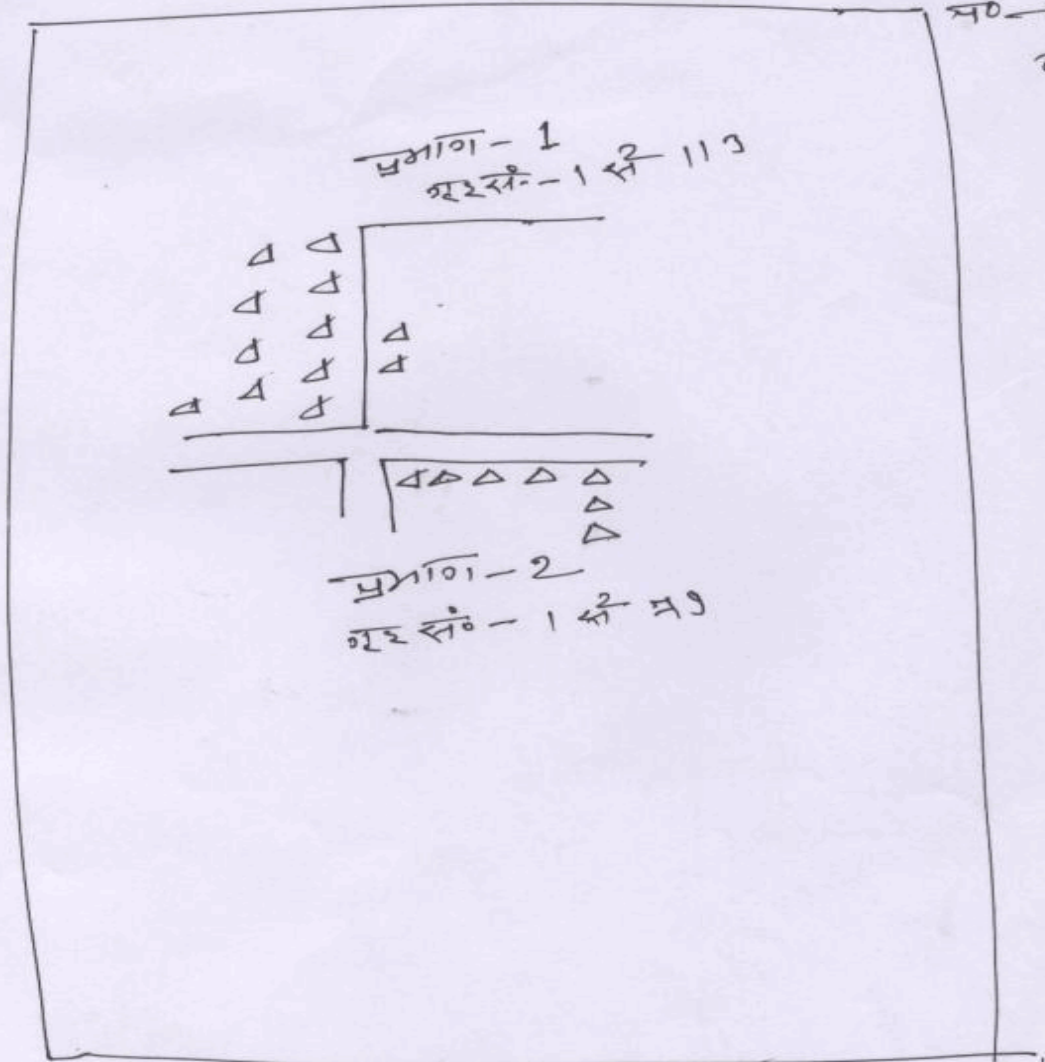 प्रभाग - 1
गृह सं०- 1 से 113
प्रभाग - 2
गृह सं० - 1 से